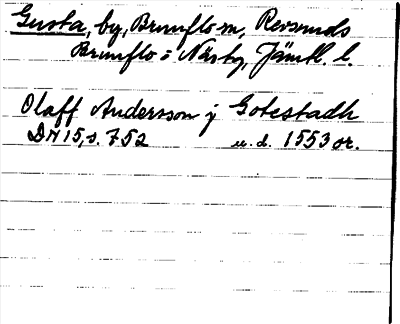 Gusta, by, Brunflo sn, Revsunds
Brunflo o Näsby, Jämtl. l.
Olaff Andersson j Gotestadh
DN 15, s. 752 u. d. 1553 or.